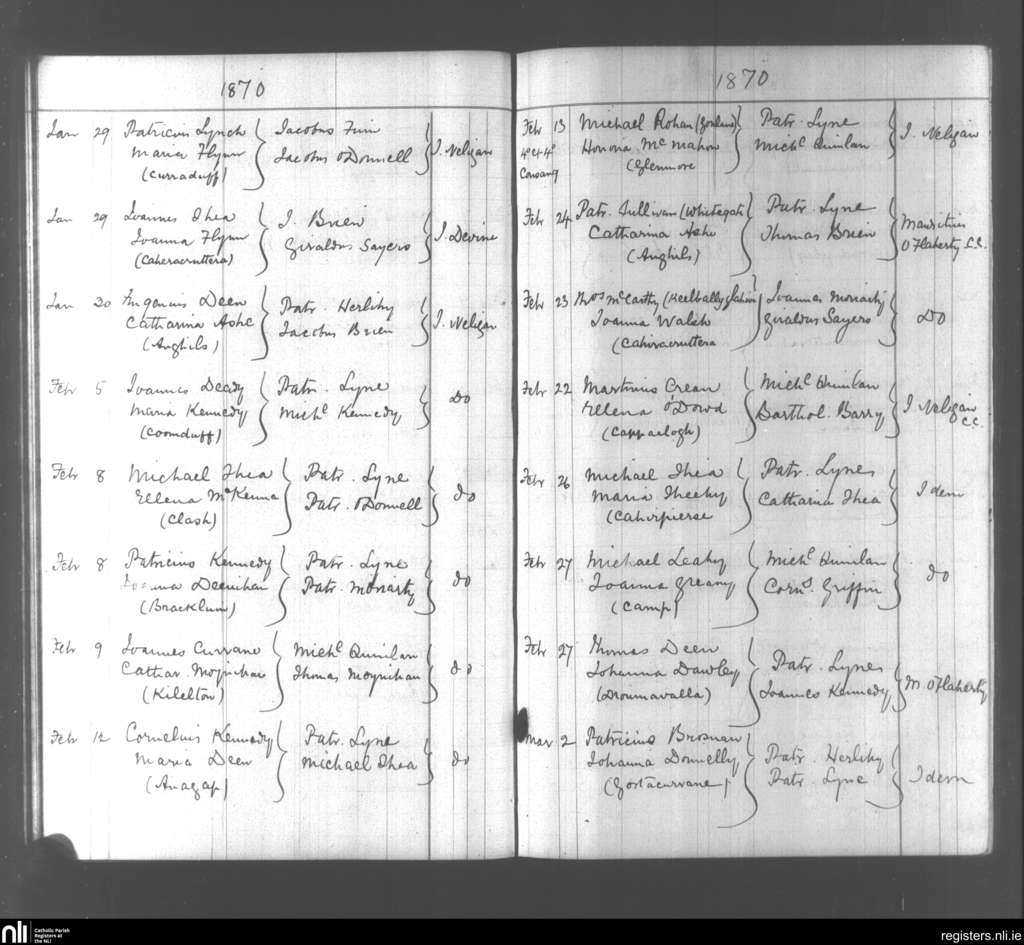 1870
Jan 29 Patricius Lynch } Jacobus Finn } J. Neligan
Maria Flynn Jacobus O'Donnell
(Curraduff)
Jan 29 Ioannes Shea } J. Brien } J. Devine
Ioanna Flynn Geraldus Sayers
(Caheracruttera)
Jan 20 Eugenius Deen } Patr Herlihy } J. Neligan
Catharina Ashe Jacobus Brien
(Anghils)
Febr 5 Ioannes Deady } Patr. Lyne } Do
Maria Kennedy Michl Kennedy
(Coomduff)
Febr 8 Michael Shea } Patr. Lyne } do
Ellena McKenna Patr. O'Donnell
(Clash)
Febr 8 Patricius Kennedy } Patr. Lyne } do
Ioanna Deenihan Patr. Moriarty
(Bracklun)
Febr 9 Ioannes Currane } Michl Quinlan } do
Cathar. Moynihan Thomas Moynihan
(Kilelton)
Febr 12 Cornelius Kennedy } Patr. Lyne } do
Maria Deen Michael Shea
(Anagap)
1870
Febr 13 Michael Rohan } Patr. Lyne } J. Neligan
4o et 4o Honora McMahon Michl Quinlan
Consang (Glenmore
Febr 24 Patr. Sullivan (Whitegate } Patr. Lyne } Mauritius
Catharina Ashe Thomas Brien O'Flaherty C.C.
(Anghils)
Febr 23 Thos McCarthy (Keelballyglahin) } Ioannes Moriarty } Do
Joanna Walsh Geraldus Sayers
(Cahiracruttera
Febr 22 Martinus Crean } Michl Quinlan } J Neligan
Ellena O'Dowd Barthol. Barry C.C.
(Cappaclogh)
Febr 26 Michael Shea } Patr. Lynes } Idem
Maria Sheehy Catharina Shea
(Cahirpierse
Febr 27 Michael Leahy } Michl Quinlan } do
Ioanna Greany Corns. Griffin
(Camp)
Febr 27 Thomas Deen } Patr. Lynes } M. O'Flaherty
Johanna Dawley Ioannes Kennedy
(Droumavalla)
Mar 2 Patricius Brosnan } Patr. Herlihy } Idem
Johanna Donnelly Patr. Lyne
(Gortacurrane)
nli Catholic Parish
Registers at
the NLI
registers.nli.ie